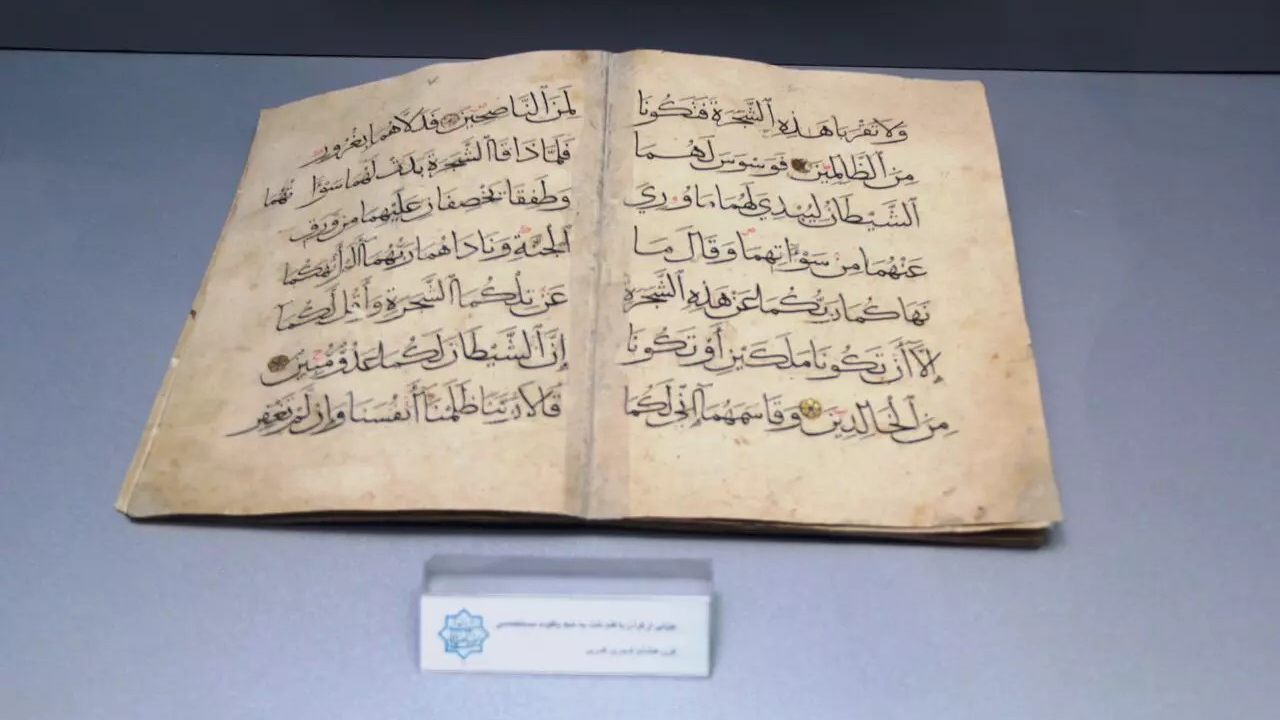 وَلَا تَقْرَبَا هَٰذِهِ ٱلشَّجَرَةَ فَتَكُونَا
مِنَ ٱلظَّالِمِينَ فَوَسْوَسَ لَهُمَا
ٱلشَّيْطَانُ لِيُبْدِيَ لَهُمَا مَا وُورِيَ
عَنْهُمَا مِن سَوْآتِهِمَا وَقَالَ مَا
نَهَاكُمَا رَبُّكُمَا عَنْ هَٰذِهِ ٱلشَّجَرَةِ
إِلَّا أَن تَكُونَا مَلَكَيْنِ أَوْ تَكُونَا
مِنَ ٱلْخَالِدِينَ وَقَاسَمَهُمَا إِنِّي لَكُمَا
لَمِنَ ٱلنَّاصِحِينَ فَدَلَّاهُمَا بِغُرُورٍ
فَلَمَّا ذَاقَا ٱلشَّجَرَةَ بَدَت لَهُمَا سَوْآتُهُمَا
وَطَفِقَا يَخْصِفَانِ عَلَيْهِمَا مِن وَرَقِ
ٱلْجَنَّةِ وَنَادَاهُمَا رَبُّهُمَا أَلَمْ أَنْهَكُمَا
عَن تِلْكُمَا ٱلشَّجَرَةِ وَأَقُل لَكُمَا
إِنَّ ٱلشَّيْطَانَ لَكُمَا عَدُوٌّ مُبِينٌ
قَالَا رَبَّنَا ظَلَمْنَا أَنفُسَنَا وَإِن لَمْ تَغْفِر
قرآن با قلم ثلث به خط یاقوت مستعصمی
قرن هشتم هجری قمری